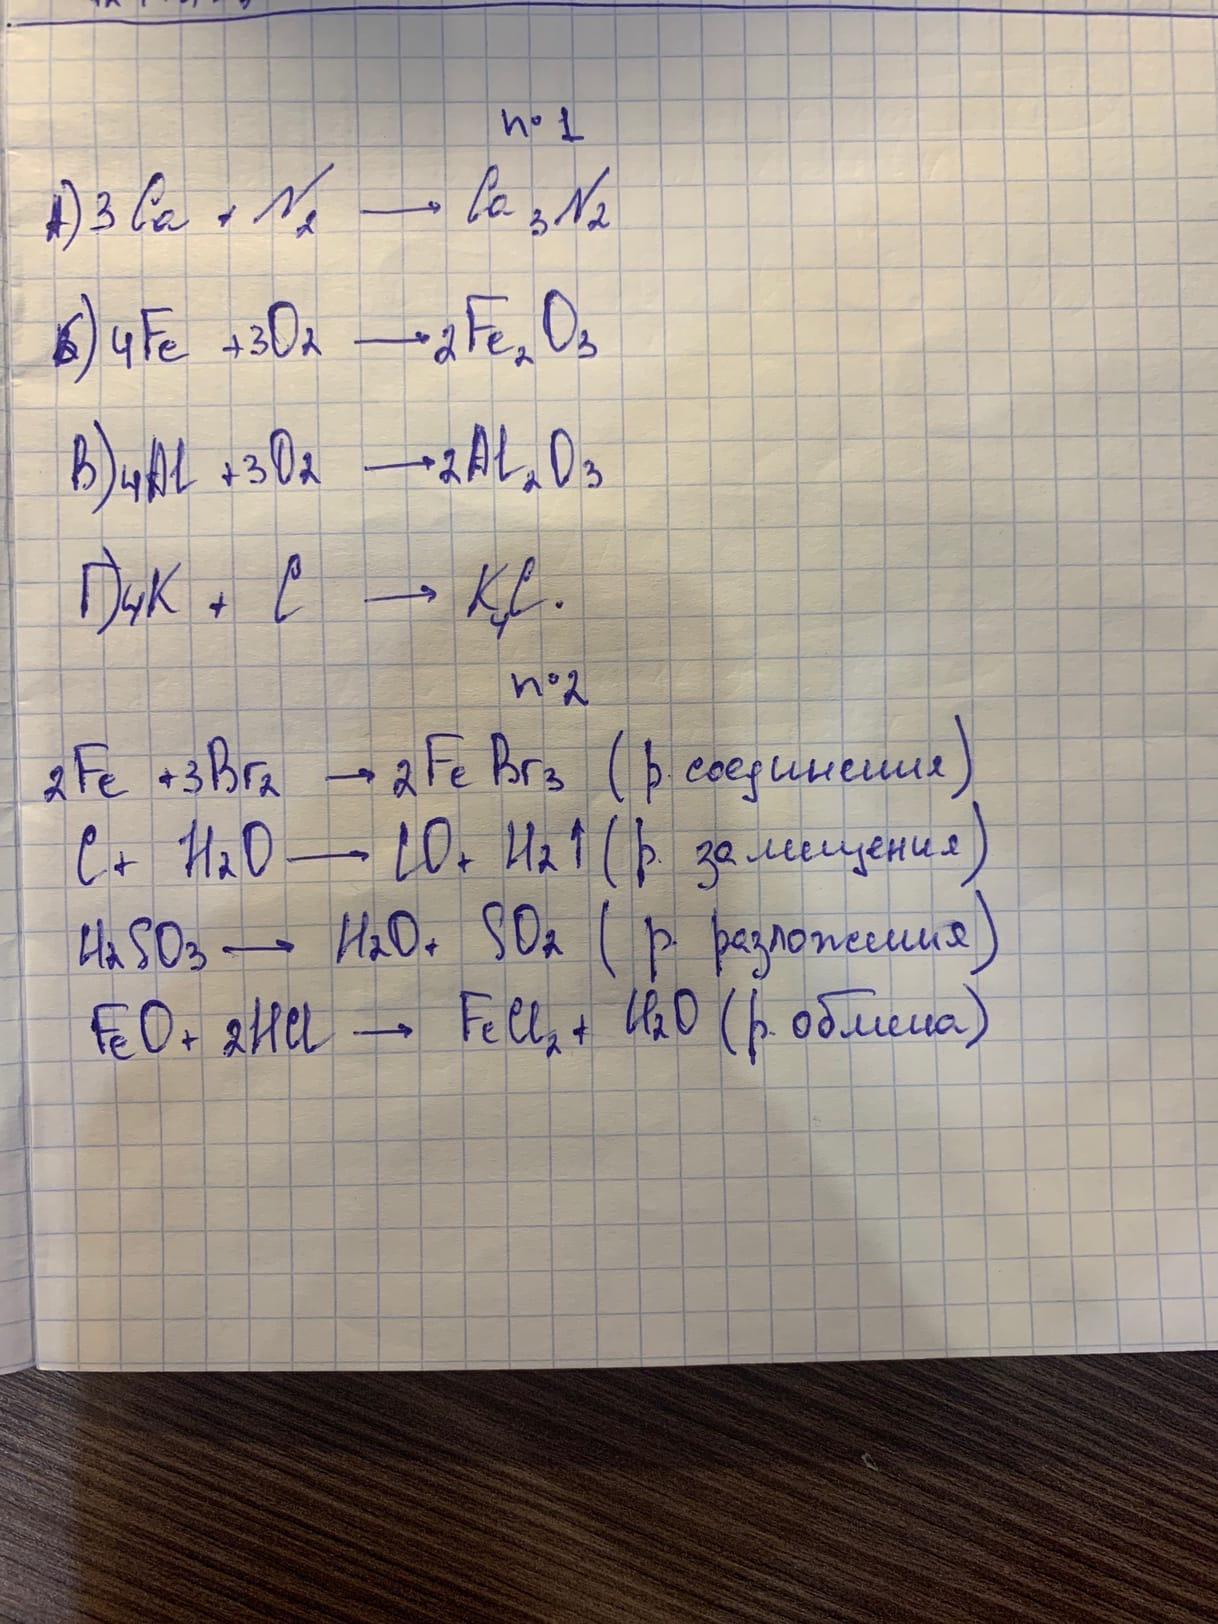 n°1
А) 3Ca + N₂ → Ca₃N₂
Б) 4Fe + 3O₂ → 2Fe₂O₃
В) 4Al + 3O₂ → 2Al₂O₃
Г) 4K + C → K₄C.
n°2
2Fe + 3Br₂ → 2FeBr₃ (р. соединения)
C + H₂O → CO + H₂↑ (р. замещения)
H₂SO₃ → H₂O + SO₂ (р. разложения)
FeO + 2HCl → FeCl₂ + H₂O (р. обмена)